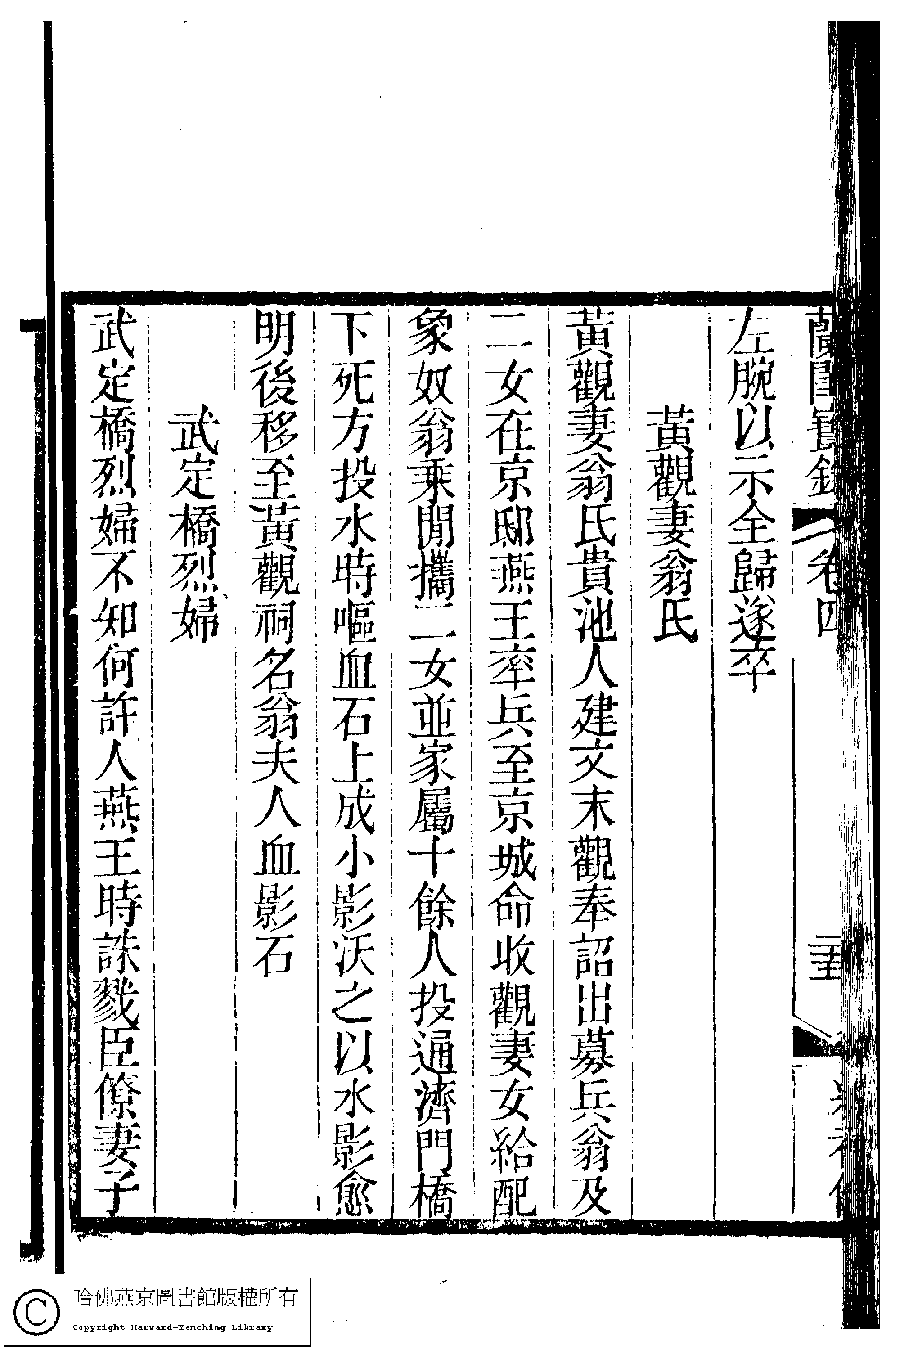 蘭閨寶錄 卷四 二五
左腕以示全歸遂卒
黃觀妻翁氏
黃觀妻翁氏貴池人建文末觀奉詔出募兵翁及
二女在京邸燕王率兵至京城命收觀妻女給配
象奴翁乘閒攜二女並家屬十餘人投通濟門橋
下死方投水時嘔血石上成小影沃之以水影愈
明後移至黃觀祠名翁夫人血影石
武定橋烈婦
武定橋烈婦不知何許人燕王時誅戮臣僚妻子
哈佛燕京圖書館版權所有
Copyright Harvard-Yenching Library